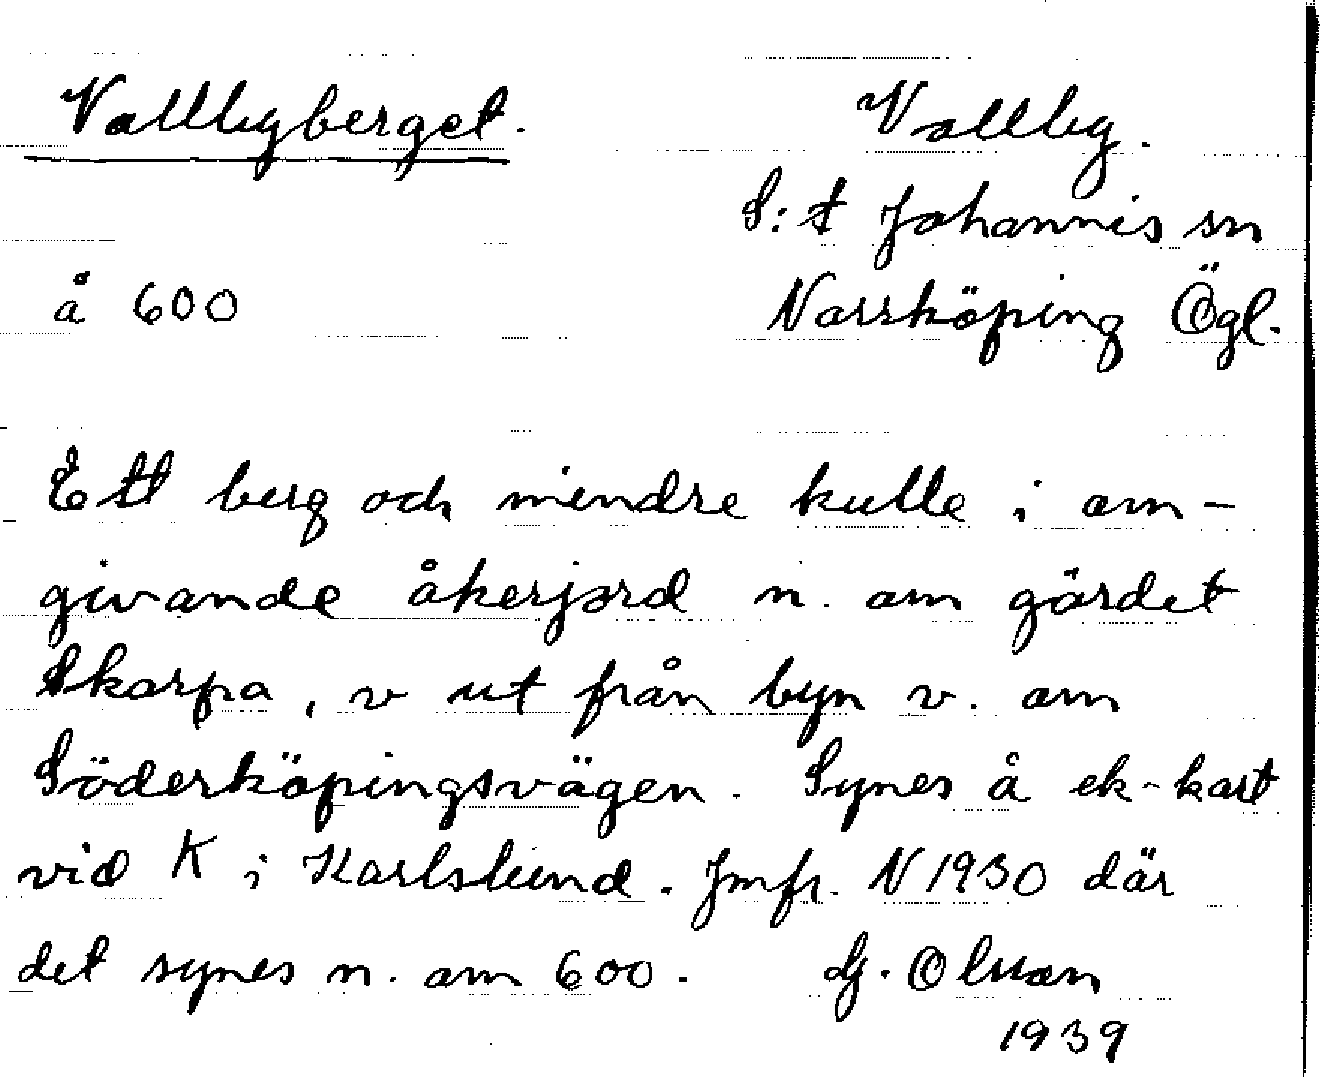 Vallbyberget.
Vallby.
S:t Johannis sn
å 600
Norrköping Ögl.
Ett berg och mindre kulle i om-
givande åkerjord n. om gärdet
Skarpa, v ut från byn v. om
Söderköpingsvägen. Synes å ek-kart
vid K i Karlslund. Jmfr. N 1930 där
det synes n. om 600. G. Olsson
1939